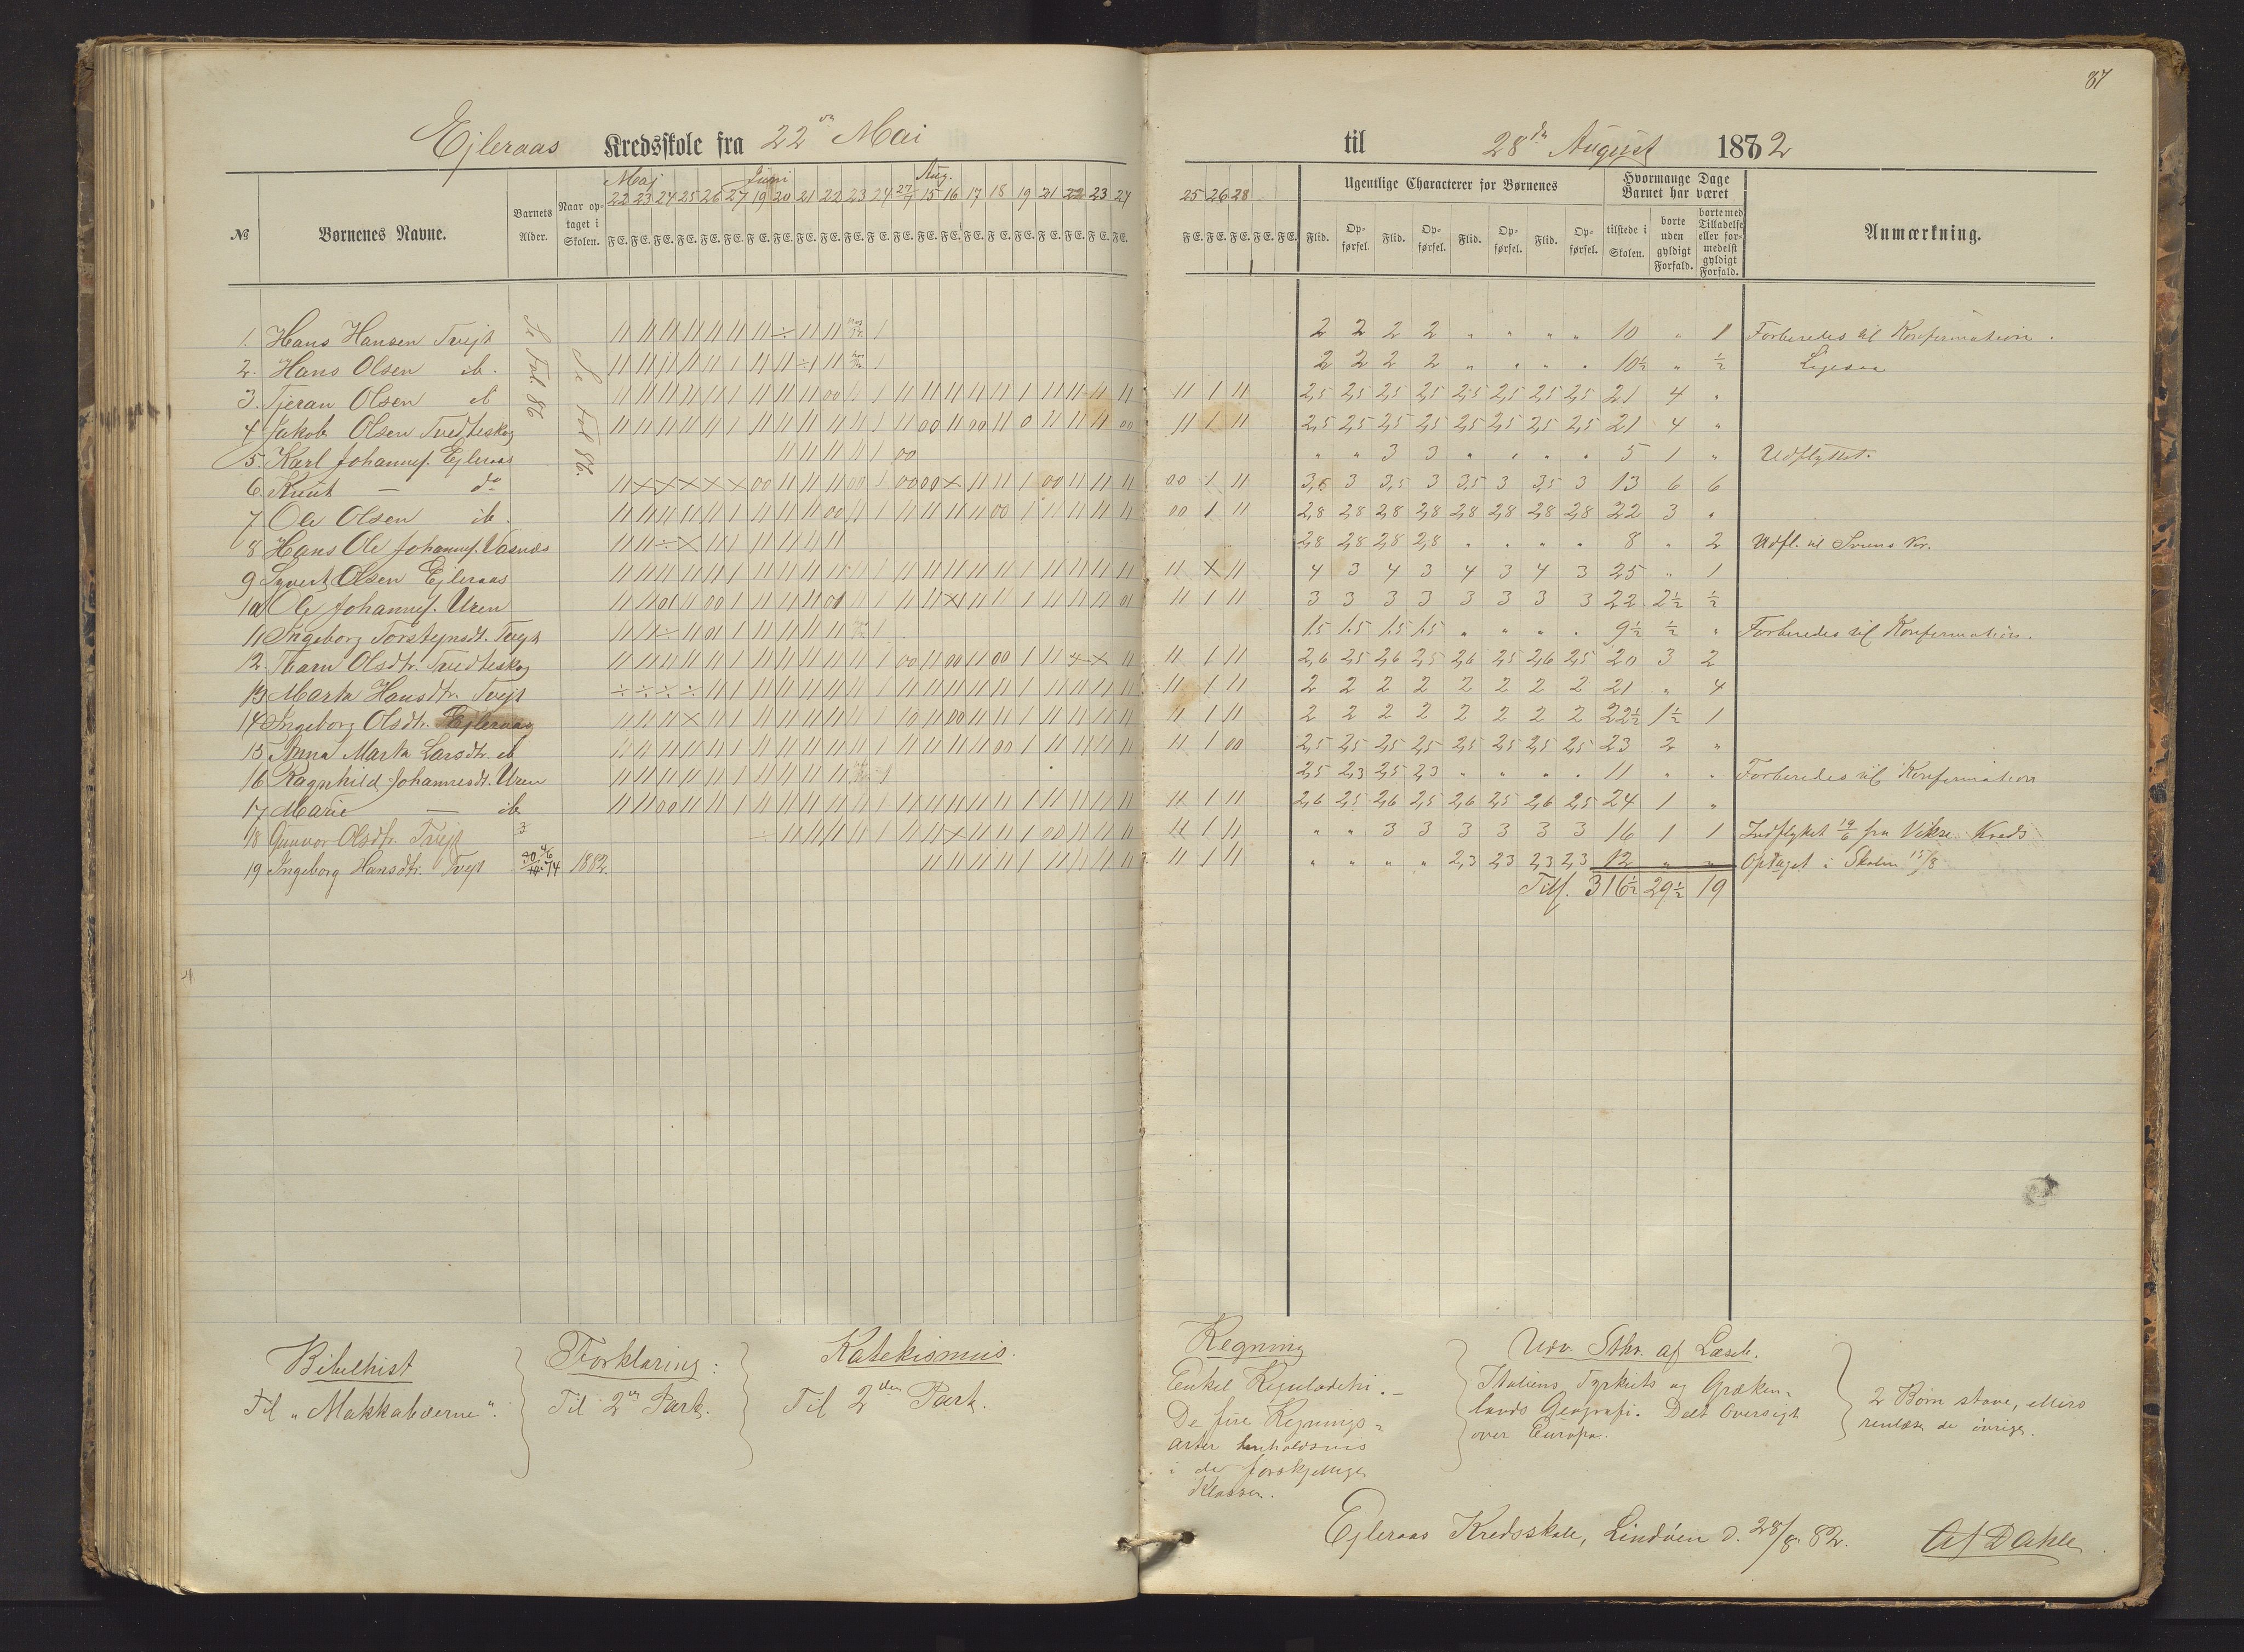 87
Ejleraas Kredsskole fra 22de Mai til 28de August 1882
Maj Juni Aug.
22 23 24 25 26 27 19 20 21 22 23 24 27/7 15 16 17 18 19 21 22 23 24 25 26 28
№ Børnenes Navne. Barnets Alder. Naar optaget i Skolen. F E. Ugentlige Characterer for Børnenes Flid. Opførsel. Flid. Opførsel. Flid. Opførsel. Flid. Opførsel. Hvormange Dage Barnet har været tilstede i Skolen. borte uden gyldigt Forfald. borte med Tilladelse eller formedelst gyldigt Forfald. Anmærkning.
Se Fol. 86
Se Fol 86.
1. Hans Hansen Tvejt 2 2 2 2 „ „ „ „ 10 „ 1 Forberedes til Konfirmation.
2. Hans Olsen ib. 2 2 2 2 „ „ „ „ 10½ „ ½ Ligesaa
3. Tjeran Olsen ib 2,5 2,5 2,5 2,5 2,5 2,5 2,5 2,5 21 4 „
4 Jakob Olsen Tvedteskog 2,5 2,5 2,5 2,5 2,5 2,5 2,5 2,5 21 4 „
5. Karl Johannes. Ejleraas „ „ 3 3 „ „ „ „ 5 1 „ Udflyttet.
6. Knut — do 3,5 3 3,5 3 3,5 3 3,5 3 13 6 6
7 Ole Olsen ib. 2,8 2,8 2,8 2,8 2,8 2,8 2,8 2,8 22 3 „
8 Hans Ole Johannes. Vasnæs 2,8 2,8 2,8 2,8 „ „ „ „ 8 „ 2 Udfl. til Kr.
9 Syvert Olsen Ejleraas 4 3 4 3 4 3 4 3 25 „ 1
10 Ole Johannes. Uren 3 3 3 3 3 3 3 3 22 2½ ½
11 Ingeborg Torstejnsdt. Tvejt 1.5 1.5 1.5 1.5 „ „ „ „ 9½ ½ „ Forberedes til Konfirmation.
12. Olsdtr. Tvedteskog 2,6 2,5 2,6 2,5 2,6 2,5 2,6 2,5 20 3 2
13 Marta Hansdtr. Tvejt 2 2 2 2 2 2 2 2 21 „ 4
14 Ingeborg Olsdtr. Ejleraas 2 2 2 2 2 2 2 2 22½ 1½ 1
15 Anna Marta Larsdtr. ib 2,5 2,5 2,5 2,5 2,5 2,5 2,5 2,5 23 2 „
16 Ragnhild Johannesdt. Uren 2,5 2,3 2,5 2,3 „ „ „ „ 11 „ „ Forberedes til Konfirmation
17 Marie — ib. 2,6 2,5 2,6 2,5 2,6 2,5 2,6 2,5 24 1 „
18 Gunvor Olsdtr. Tvejt „ „ 3 3 3 3 3 3 16 1 1 Indflyttet 19/6 fra Vikse Kreds
19 Ingeborg Hansdtr. Tvejt 74 1882. „ „ „ „ 2,3 2,3 2,3 2,3 12 „ „ Optaget i Skolen 15/8
Tils. 316½ 29½ 19
Bibelhist
Til „Makkabæerne“.
Forklaring:
Til 2den Part.
Katekismus.
Til 2den Part.
Regning
Enkel Reguladetri. —
De fire Regnings=
arter henholdsvis
i de forskjellige
Klasser.
Udv. Sthr. af Læseb.
Italiens, Tyrkiets og Græken=
lands Geografi. Delt Oversigt
over Europa.
2 Børn stave,
renlæse de øvrige.
Ejleraas Kredsskole, Lindøen d. 28/8. 82. Af Dahle.